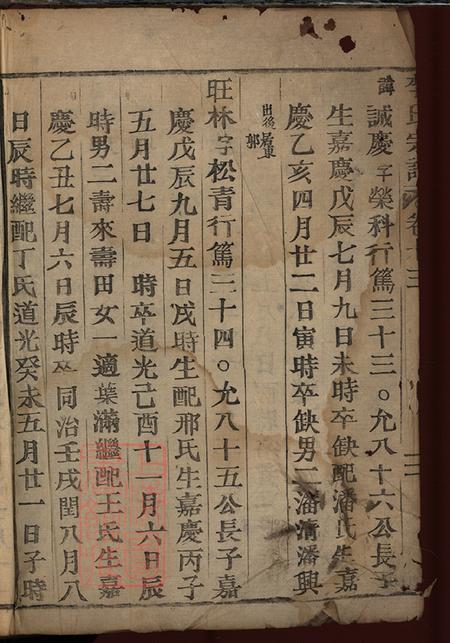 李氏宗譜 卷十三
諱誠慶字榮科行篤三十三○允八十六公長子
生嘉慶戊辰七月九日未時卒缺配潘氏生嘉
慶乙亥四月廿二日寅時卒缺男二潘清潘興
出後房東
郭
旺林字松青行篤二十四○允八十五公長子嘉
慶戊辰九月五日戌時生配邢氏生嘉慶丙子
五月廿七日 時卒道光己酉十一月六日辰
時男二壽來壽田女一適葉滿繼配王氏生嘉
慶乙丑七月六日辰時卒同治壬戌閏八月八
日辰時繼配丁氏道光癸未五月廿一日子時